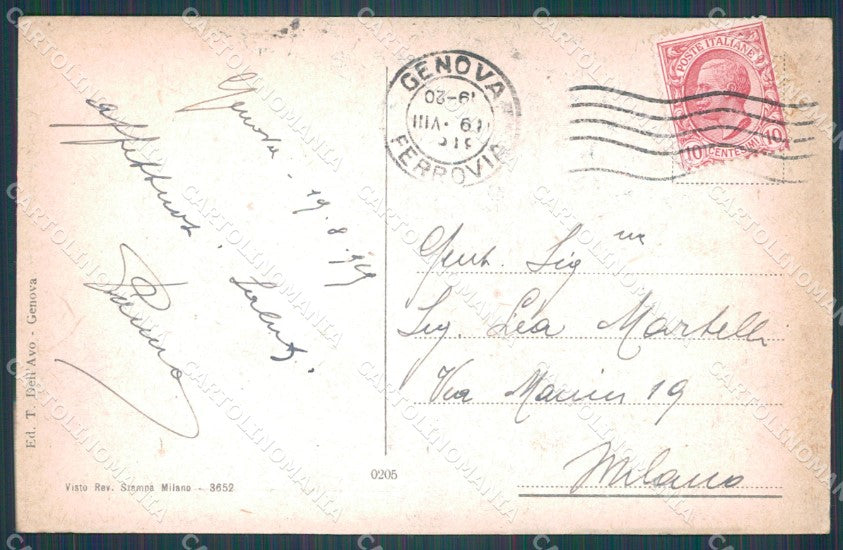 Genova - 19.8.919
affettuosi saluti.
GENOVA
19-20
19 · VIII
FERROVIA
POSTE ITALIANE
10 CENTESIMI 10
Gent. Sigᵐᵃ
Sig. Lea Martelli
Via Manin 19
Milano
Ed. T. Dell'Avo - Genova
Visto Rev. Stampa Milano - 3652
0205
CARTOLINOMANIA